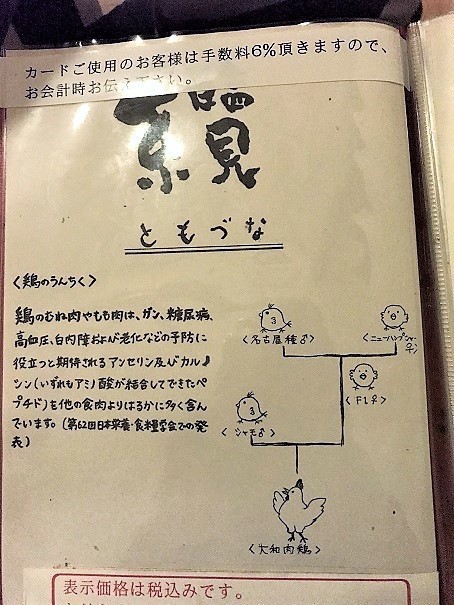 カードご使用のお客様は手数料6%頂きますので、
お会計時お伝え下さい。
ともづな
〈鶏のうんちく〉
鶏のむね肉やもも肉は、ガン、糖尿病、
高血圧、白内障および老化などの予防に
役立つと期待されるアンセリン及びカルノ
シン(いずれもアミノ酸が結合してできたペ
プチド)を他の食肉よりはるかに多く含ん
でいます。(第62回日本栄養・食糧学会での発
表)
〈名古屋種♂〉
〈ニューハンプシャー♀〉
〈F1♀〉
〈シャモ♂〉
〈大和肉鶏〉
表示価格は税込みです。